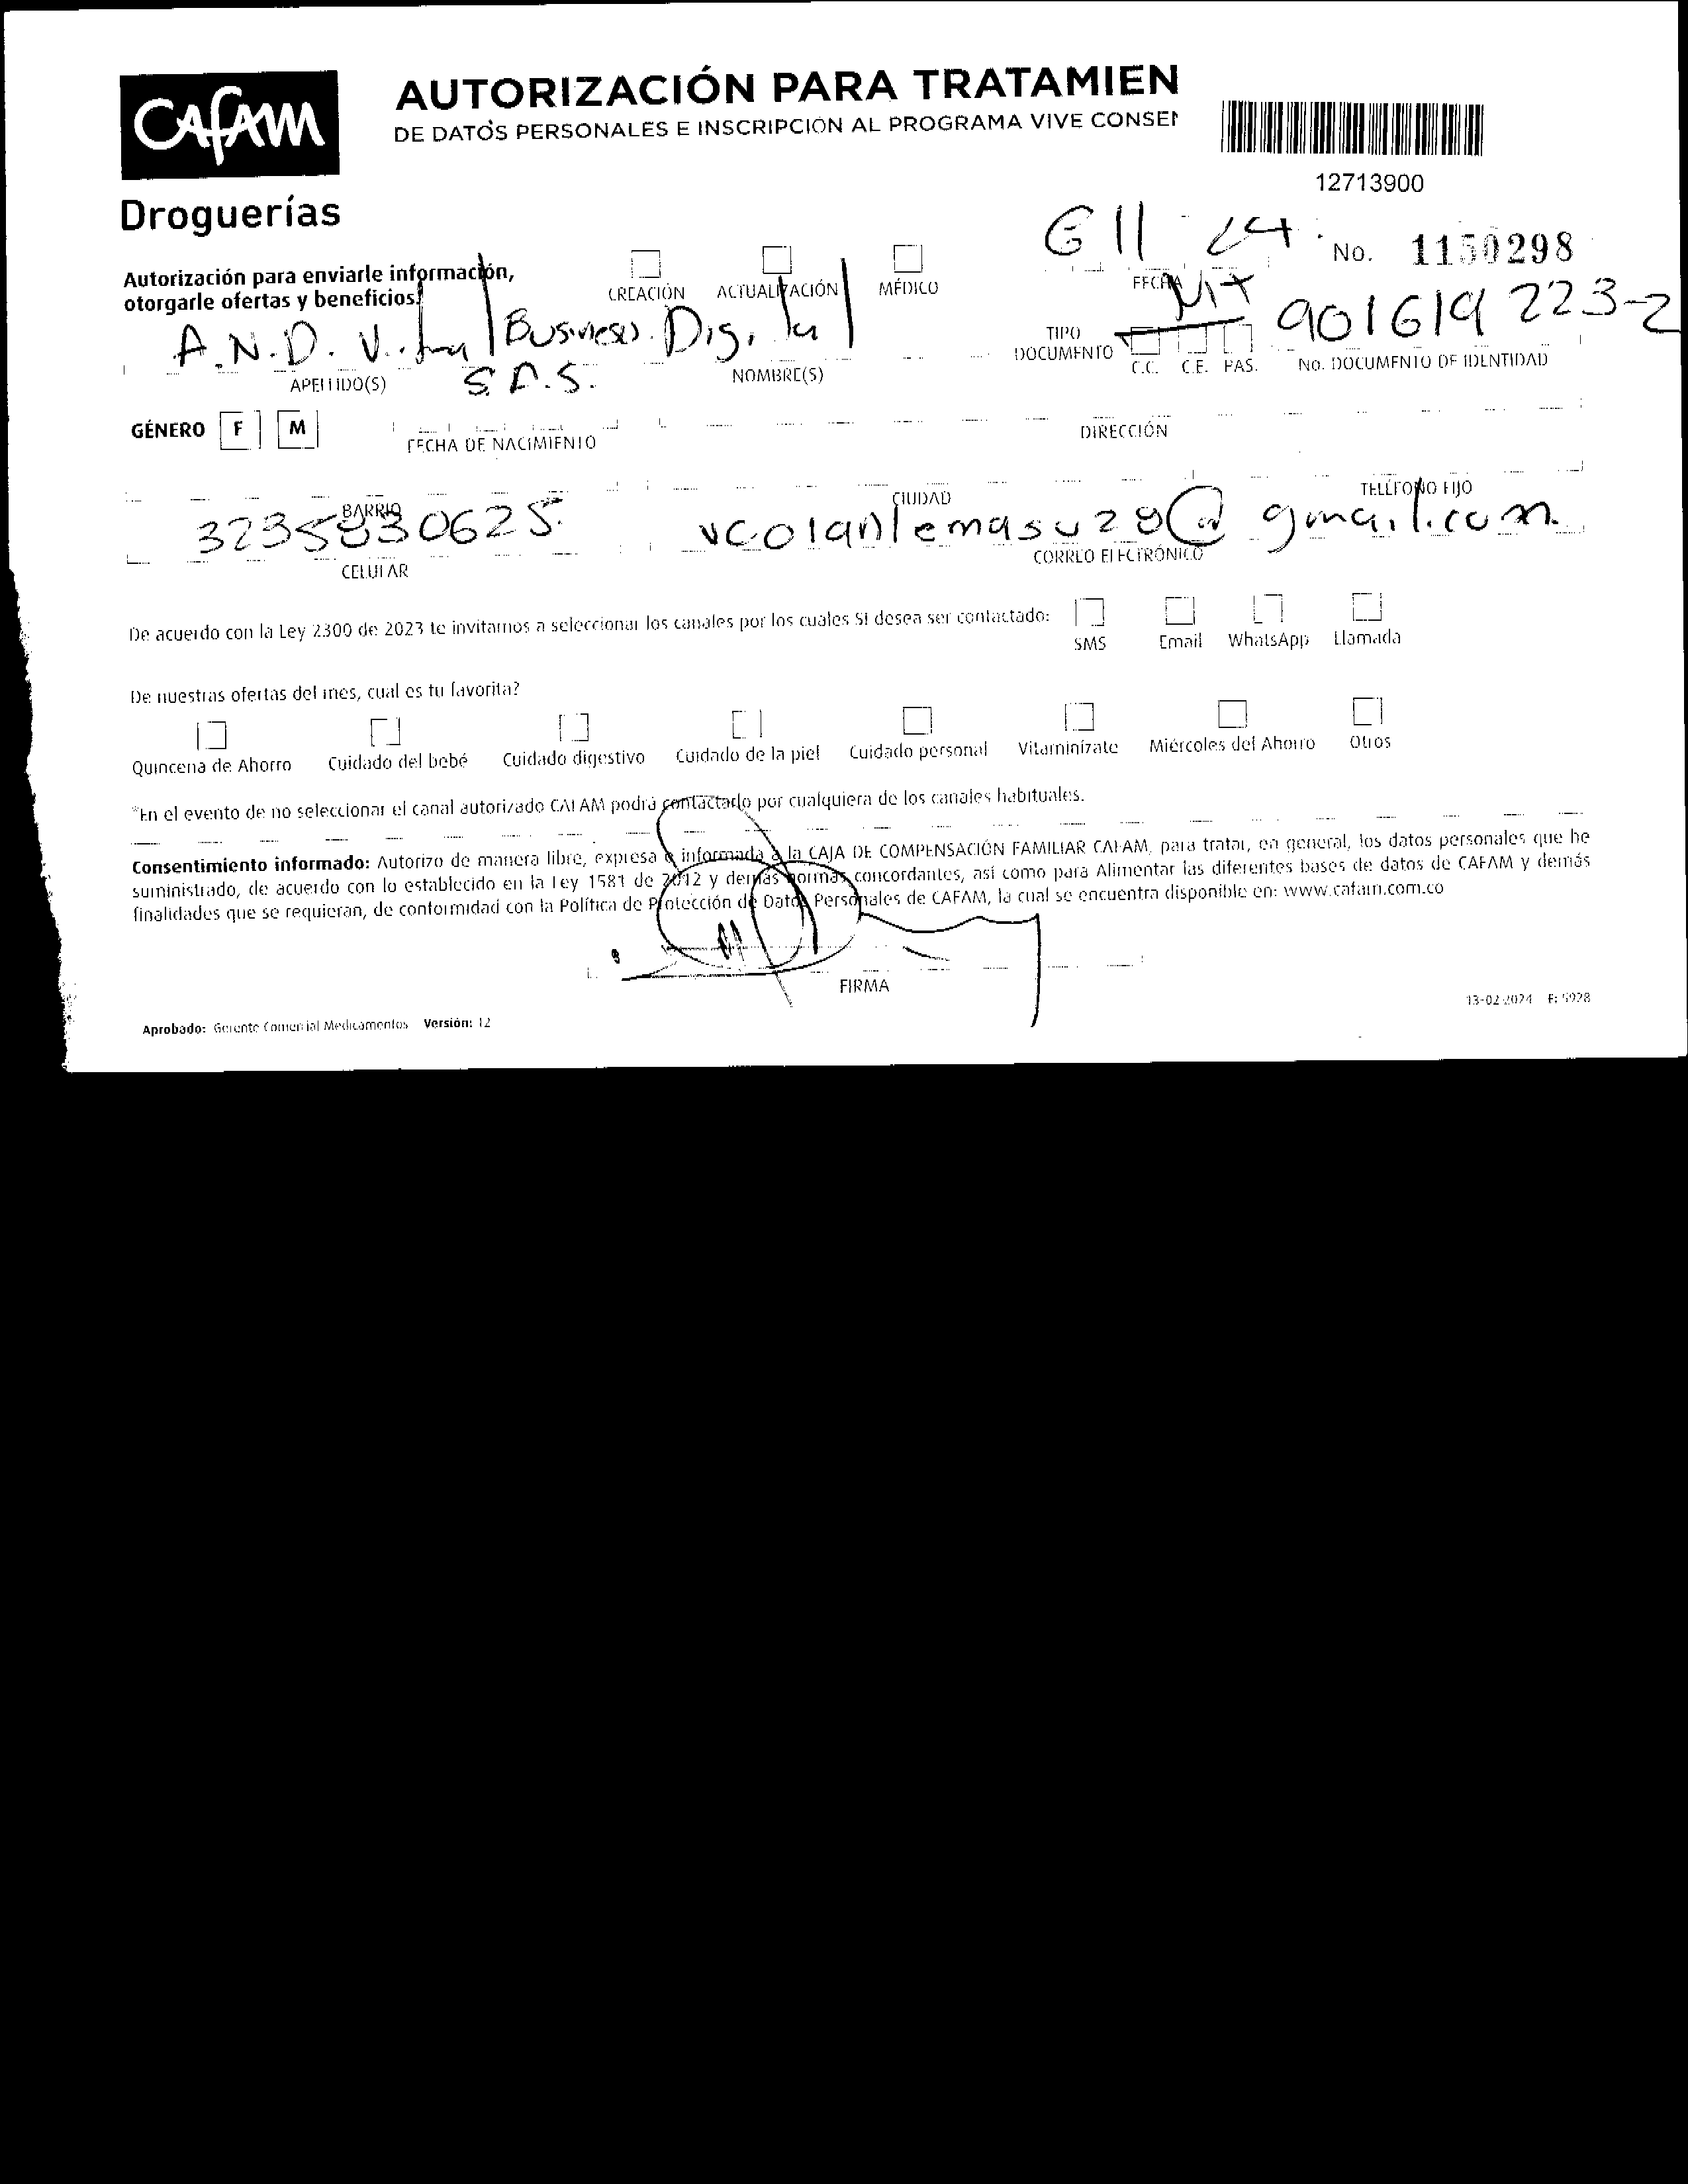 CAFAM
Droguerías
AUTORIZACIÓN PARA TRATAMIEN
DE DATOS PERSONALES E INSCRIPCIÓN AL PROGRAMA VIVE CONSEN
12713900
Autorización para enviarle información,
otorgarle ofertas y beneficios.
CREACIÓN ACTUALIZACIÓN MÉDICO
11 24
FECHA
No. 1150298
A.N.D. Vital Business Digital
S.A.S.
APELLIDO(S) NOMBRE(S)
TIPO
DOCUMENTO
Nit
C.C. C.E. PAS.
901619223-2
No. DOCUMENTO DE IDENTIDAD
GÉNERO F M
FECHA DE NACIMIENTO
DIRECCIÓN
BARRIO
CIUDAD
TELÉFONO FIJO
3235830625
CELULAR
@gmail.com
CORREO ELECTRÓNICO
De acuerdo con la Ley 2300 de 2023 te invitamos a seleccionar los canales por los cuales SI desea ser contactado:
SMS Email WhatsApp Llamada
De nuestras ofertas del mes, cual es tu favorita?
Quincena de Ahorro Cuidado del bebé Cuidado digestivo Cuidado de la piel Cuidado personal Vitaminízate Miércoles del Ahorro Otros
*En el evento de no seleccionar el canal autorizado CAFAM podrá contactarlo por cualquiera de los canales habituales.
Consentimiento informado: Autorizo de manera libre, expresa e informada a la CAJA DE COMPENSACIÓN FAMILIAR CAFAM, para tratar, en general, los datos personales que he
suministrado, de acuerdo con lo establecido en la Ley 1581 de 2012 y demás normas concordantes, así como para Alimentar las diferentes bases de datos de CAFAM y demás
finalidades que se requieran, de conformidad con la Política de Protección de Datos Personales de CAFAM, la cual se encuentra disponible en: www.cafam.com.co
FIRMA
13-02-2024 F: 5928
Aprobado: Gerente Comercial Medicamentos Versión: 12